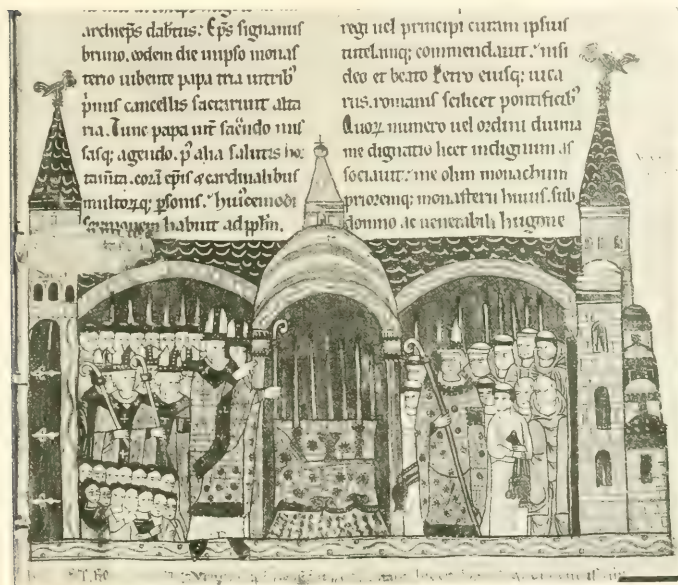 archiep̄s dab̄tus. Ep̄s signanus
bruno. eodem die in ip̄so monas
terio iubente papa tria in trib
p̄mis cancellis sacrarunt alta
ria. Tunc papa int̄ sac̄ndo mis
sasq; agendo. p̄ alia salutis hor
tam̄ta. corā ep̄is & cardinalibus
multorq; p̄sonis. huiꝰcemodi
sermonem habuit ad pp̄lm.
regi uel principi curam ipsius
tutelamq; commendauit. nisi
deo et beato Petro eiusq; uica
riis. romanis scilicet pontificib
Quorꝝ numero uel ordini diuina
me dignatio licet indignum as
sociauit. me olim monachum
prioremq; monasterii huius. sub
domno ac uenerabili hugone